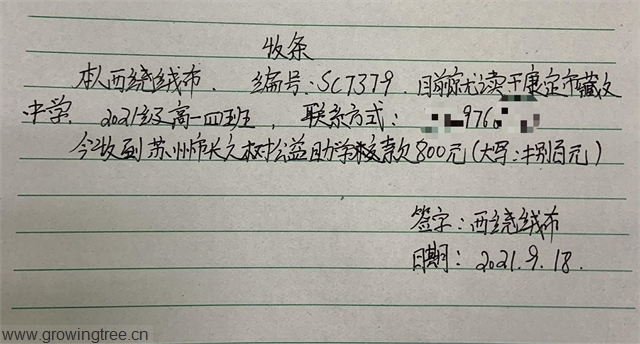 收条
本人西绕绒布.编号:SC7379.目前就读于康定市藏文
中学.2021级高一四班,联系方式:976
今收到苏州市长之树公益助学款800元(大写:捌百元)
签字:西绕绒布
日期:2021.9.18.
www.growingtree.cn